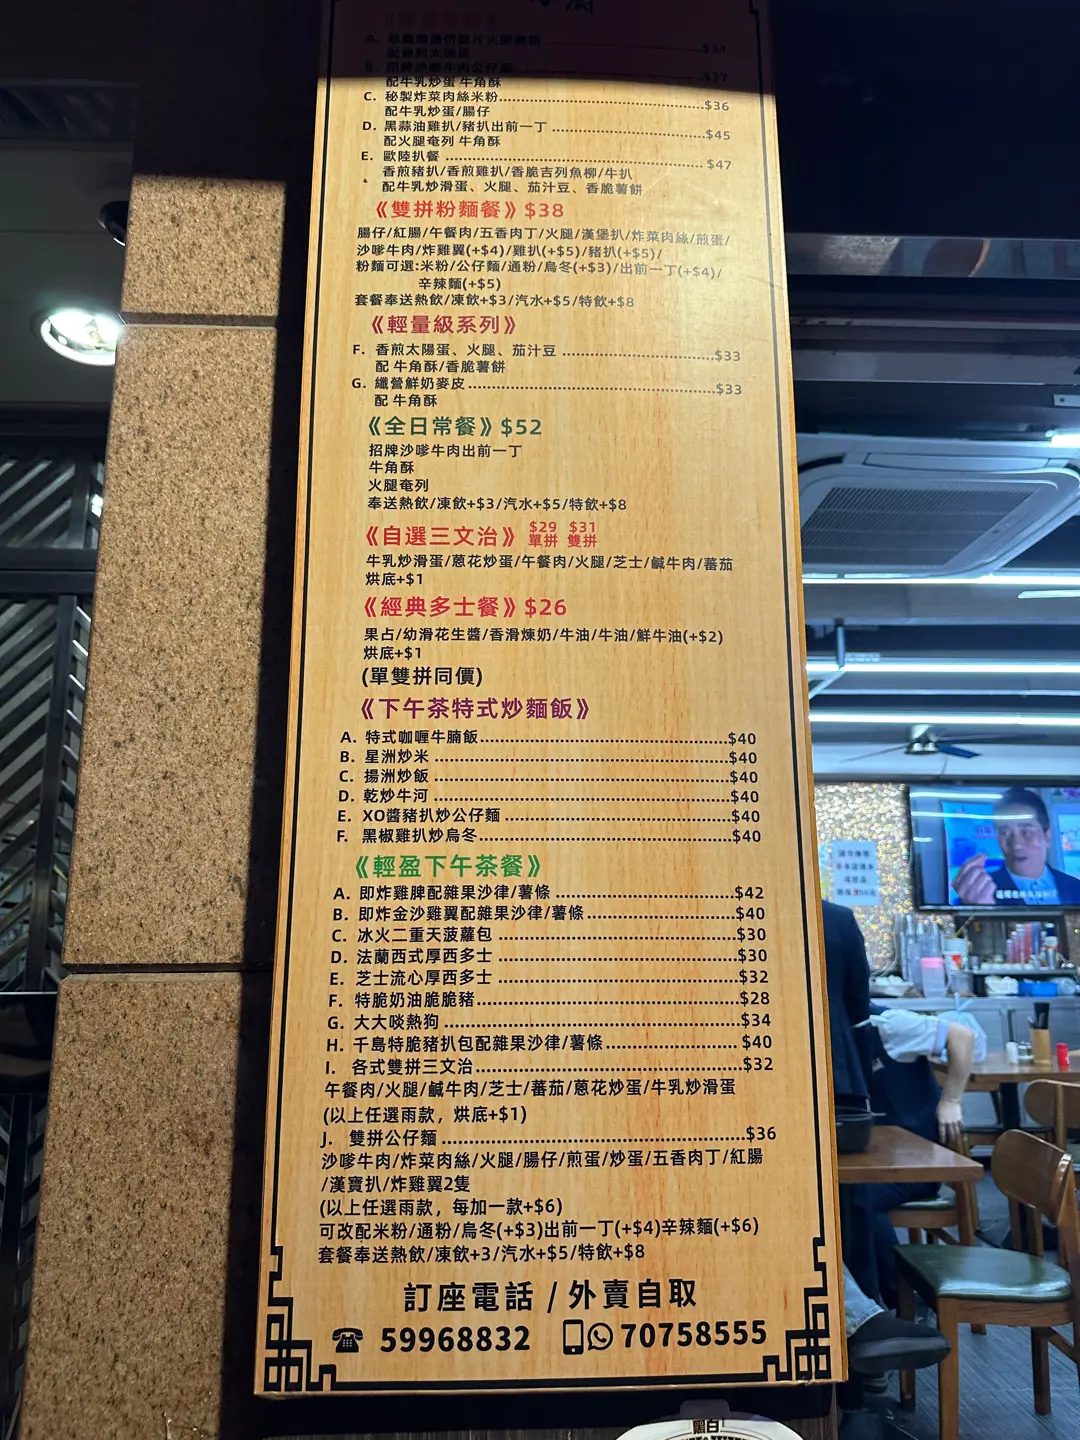 $34
$37
配牛乳炒蛋 牛角酥
C. 秘製炸菜肉絲米粉 $36
配牛乳炒蛋/腸仔
D. 黑蒜油雞扒/豬扒出前一丁 $45
配火腿奄列 牛角酥
E. 歐陸扒餐 $47
香煎豬扒/香煎雞扒/香脆吉列魚柳/牛扒
配牛乳炒滑蛋、火腿、茄汁豆、香脆薯餅
《雙拼粉麵餐》$38
腸仔/紅腸/午餐肉/五香肉丁/火腿/漢堡扒/炸菜肉絲/煎蛋/
沙嗲牛肉/炸雞翼(+$4)/雞扒(+$5)/豬扒(+$5)/
粉麵可選:米粉/公仔麵/通粉/烏冬(+$3)/出前一丁(+$4)/
辛辣麵(+$5)
套餐奉送熱飲/凍飲+$3/汽水+$5/特飲+$8
《輕量級系列》
F. 香煎太陽蛋、火腿、茄汁豆 $33
配 牛角酥/香脆薯餅
G. 纖營鮮奶麥皮 $33
配 牛角酥
《全日常餐》$52
招牌沙嗲牛肉出前一丁
牛角酥
火腿奄列
奉送熱飲/凍飲+$3/汽水+$5/特飲+$8
《自選三文治》 $29 單拼 $31 雙拼
牛乳炒滑蛋/蔥花炒蛋/午餐肉/火腿/芝士/鹹牛肉/蕃茄
烘底+$1
《經典多士餐》$26
果占/幼滑花生醬/香滑煉奶/牛油/牛油/鮮牛油(+$2)
烘底+$1
(單雙拼同價)
《下午茶特式炒麵飯》
A. 特式咖喱牛腩飯 $40
B. 星洲炒米 $40
C. 揚洲炒飯 $40
D. 乾炒牛河 $40
E. XO醬豬扒炒公仔麵 $40
F. 黑椒雞扒炒烏冬 $40
《輕盈下午茶餐》
A. 即炸雞脾配雜果沙律/薯條 $42
B. 即炸金沙雞翼配雜果沙律/薯條 $40
C. 冰火二重天菠蘿包 $30
D. 法蘭西式厚西多士 $30
E. 芝士流心厚西多士 $32
F. 特脆奶油脆脆豬 $28
G. 大大啖熱狗 $34
H. 千島特脆豬扒包配雜果沙律/薯條 $40
I. 各式雙拼三文治 $32
午餐肉/火腿/鹹牛肉/芝士/蕃茄/蔥花炒蛋/牛乳炒滑蛋
(以上任選雨款，烘底+$1)
J. 雙拼公仔麵 $36
沙嗲牛肉/炸菜肉絲/火腿/腸仔/煎蛋/炒蛋/五香肉丁/紅腸
/漢寶扒/炸雞翼2隻
(以上任選雨款，每加一款+$6)
可改配米粉/通粉/烏冬(+$3)出前一丁(+$4)辛辣麵(+$6)
套餐奉送熱飲/凍飲+3/汽水+$5/特飲+$8
訂座電話 / 外賣自取
59968832 70758555
黑白